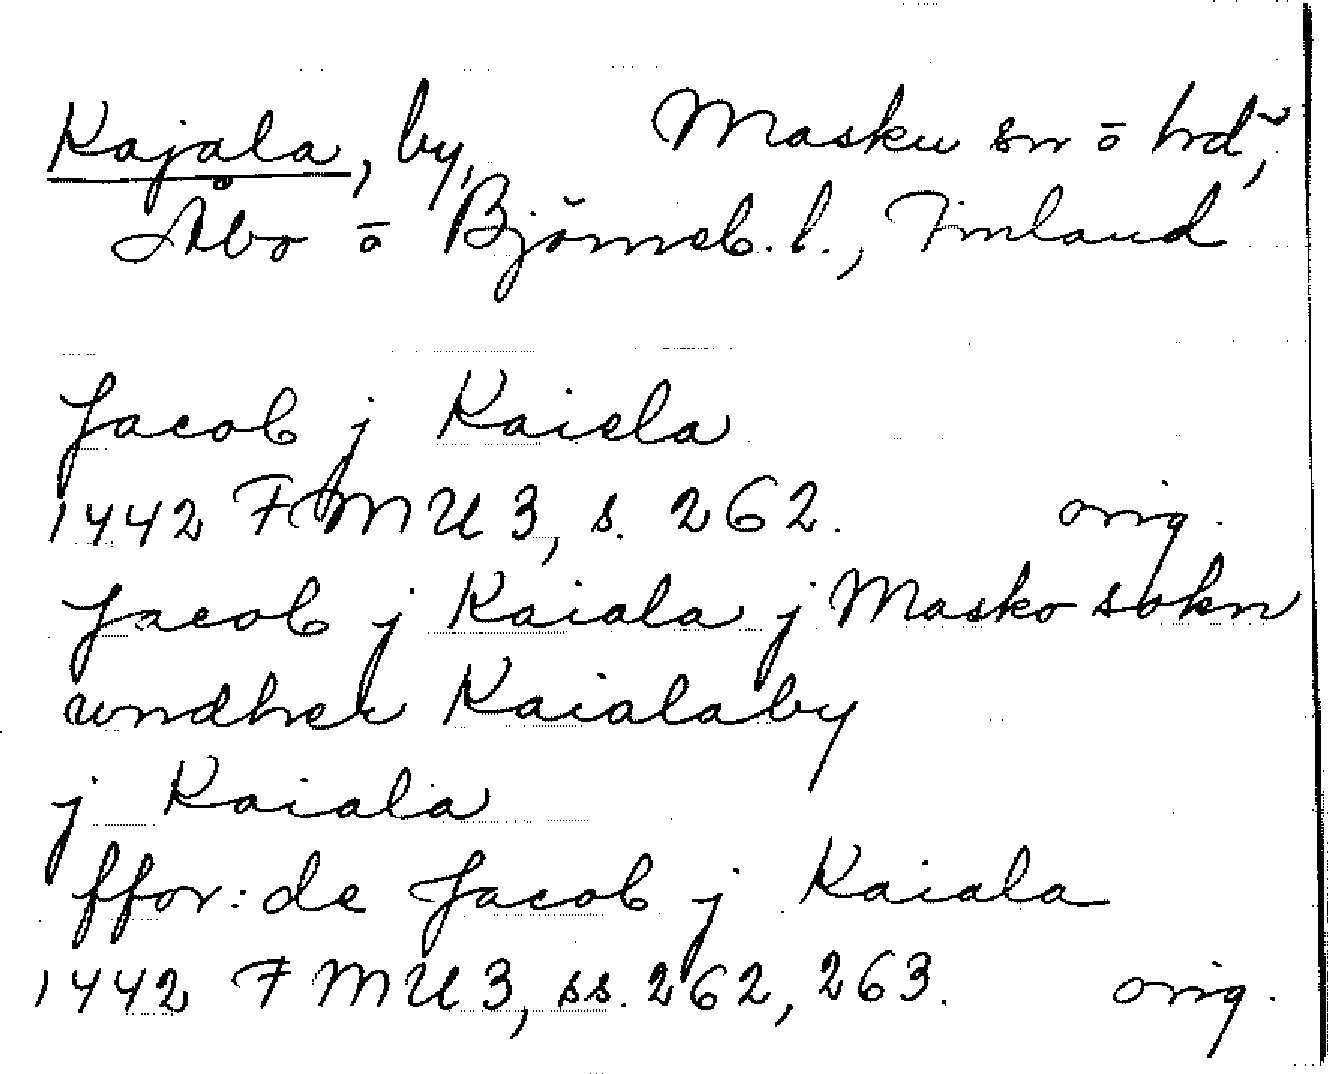 Kajala, by, Masku sn ō hd,
Åbo ō Björneb. l., Finland
Jacob j Kaiela
1442 FMU 3, s. 262. orig.
Jacob j Kaiala j Masko sokn
undher Kaialaby
j Kaiala
ffor:de Jacob j Kaiala
1442 FMU 3, ss. 262, 263. orig.